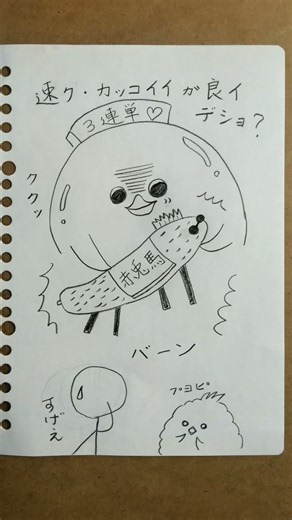 速ク・カッコイイが良イ
デショ？
3連単♡
ククッ
赤兎馬
バーン
すげえ
プヨピ